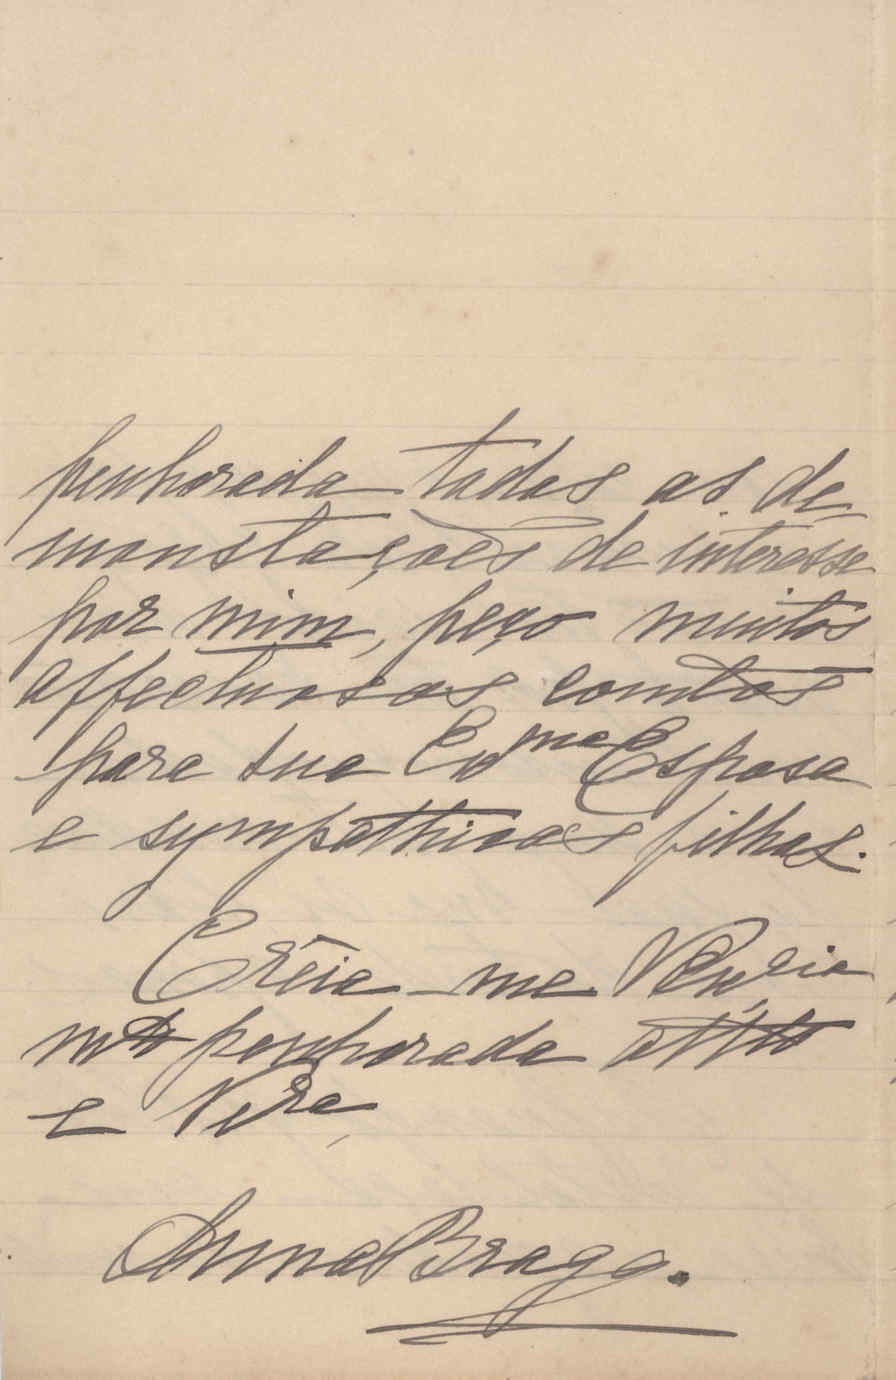 penhorada todas as de-
monstações de interesse
por mim, peço muitos
affectuosos comtos
para sua Ex.ma Esposa
e sympathicas filhas.
Creia-me
mto penhorada atto
e
Anna Braga.